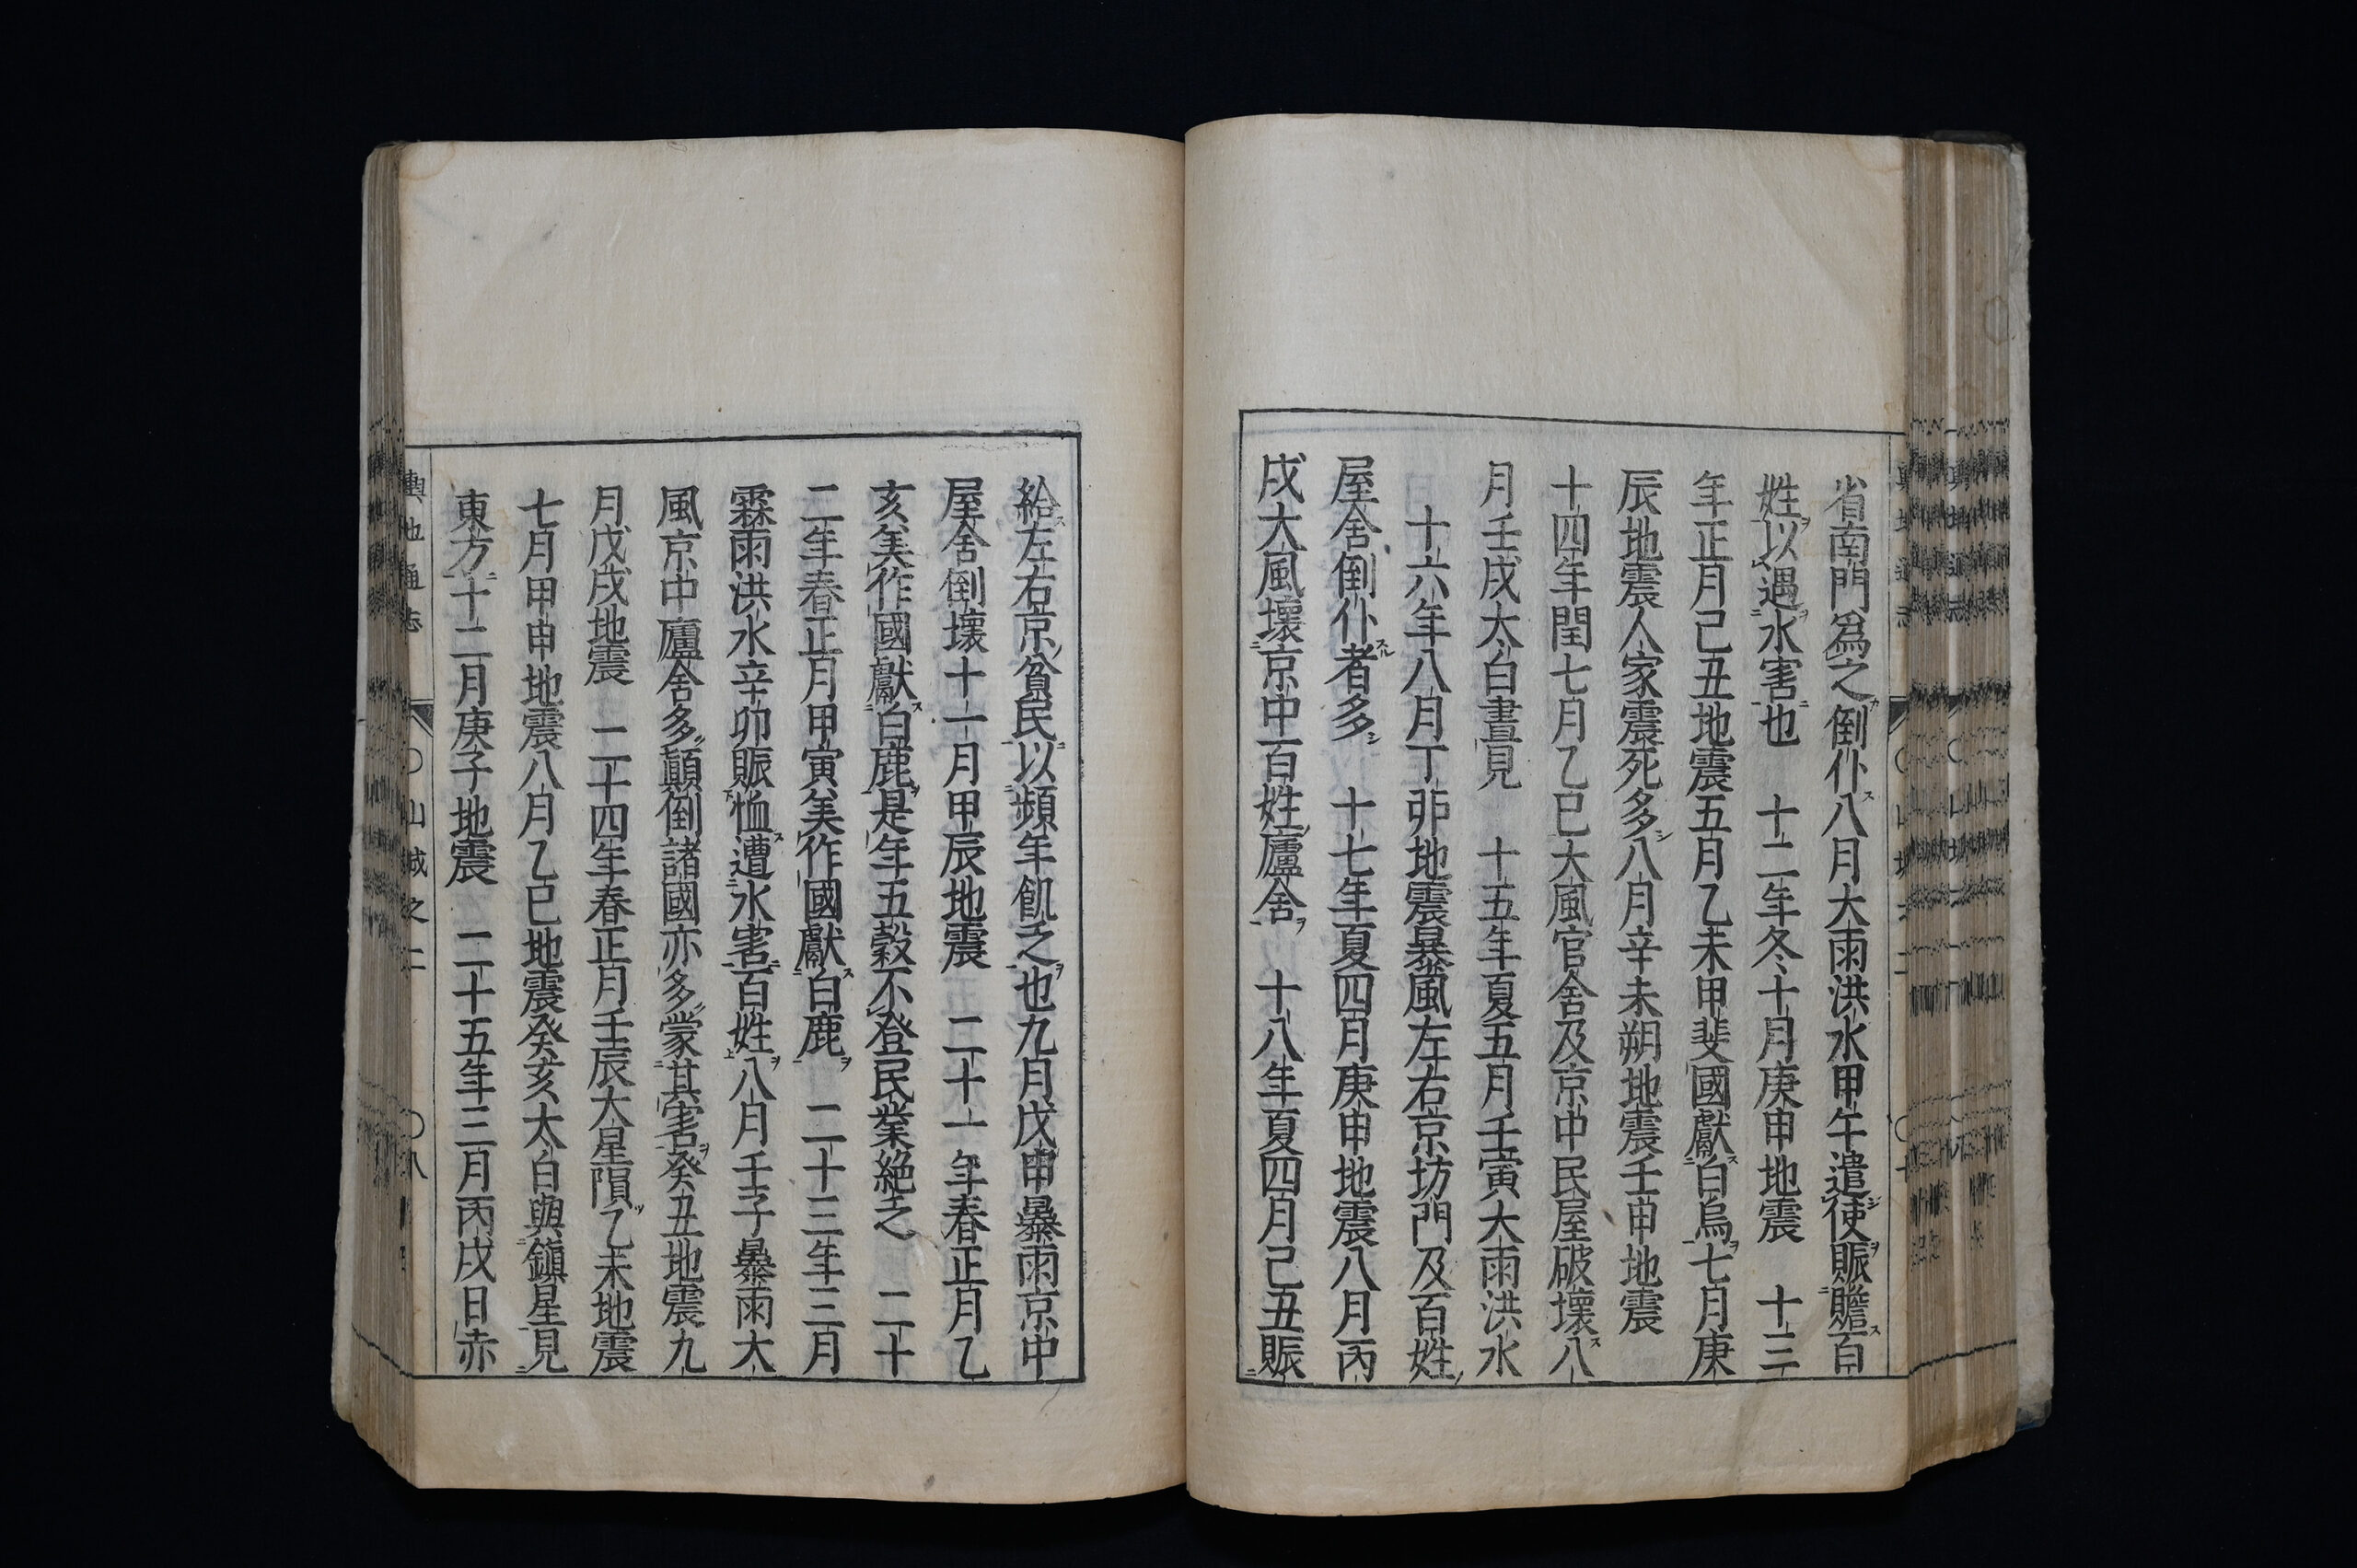 省南門爲之倒仆八月大雨洪水甲午遣使賑贍百
姓以遇水害也　十二年冬十月庚申地震　十三
年正月己丑地震五月乙未甲斐國獻白烏七月庚
辰地震人家震死多八月辛未朔地震壬申地震
十四年閏七月乙巳大風官舍及京中民屋破壞八
月壬戌太白晝見　十五年夏五月壬寅大雨洪水
十六年八月丁卯地震暴風左右京坊門及百姓
屋舍倒仆者多　十七年夏四月庚申地震八月丙
戌大風壞京中百姓廬舍　十八年夏四月己丑賑
給左右京貧民以頻年飢乏也九月戊申暴雨京中
屋舍倒壞十一月甲辰地震　二十一年春正月乙
亥美作國獻白鹿是年五穀不登民業絶乏　二十
二年春正月甲寅美作國獻白鹿　二十三年三月
霖雨洪水辛卯賑恤遭水害百姓八月壬子暴雨大
風京中廬舍多顛倒諸國亦多蒙其害癸丑地震九
月戊戌地震　二十四年春正月壬辰大星隕乙未地震
七月甲申地震八月乙巳地震癸亥太白與鎮星見
東方十二月庚子地震　二十五年三月丙戌日赤
輿地通志　〇山城之二　〇八